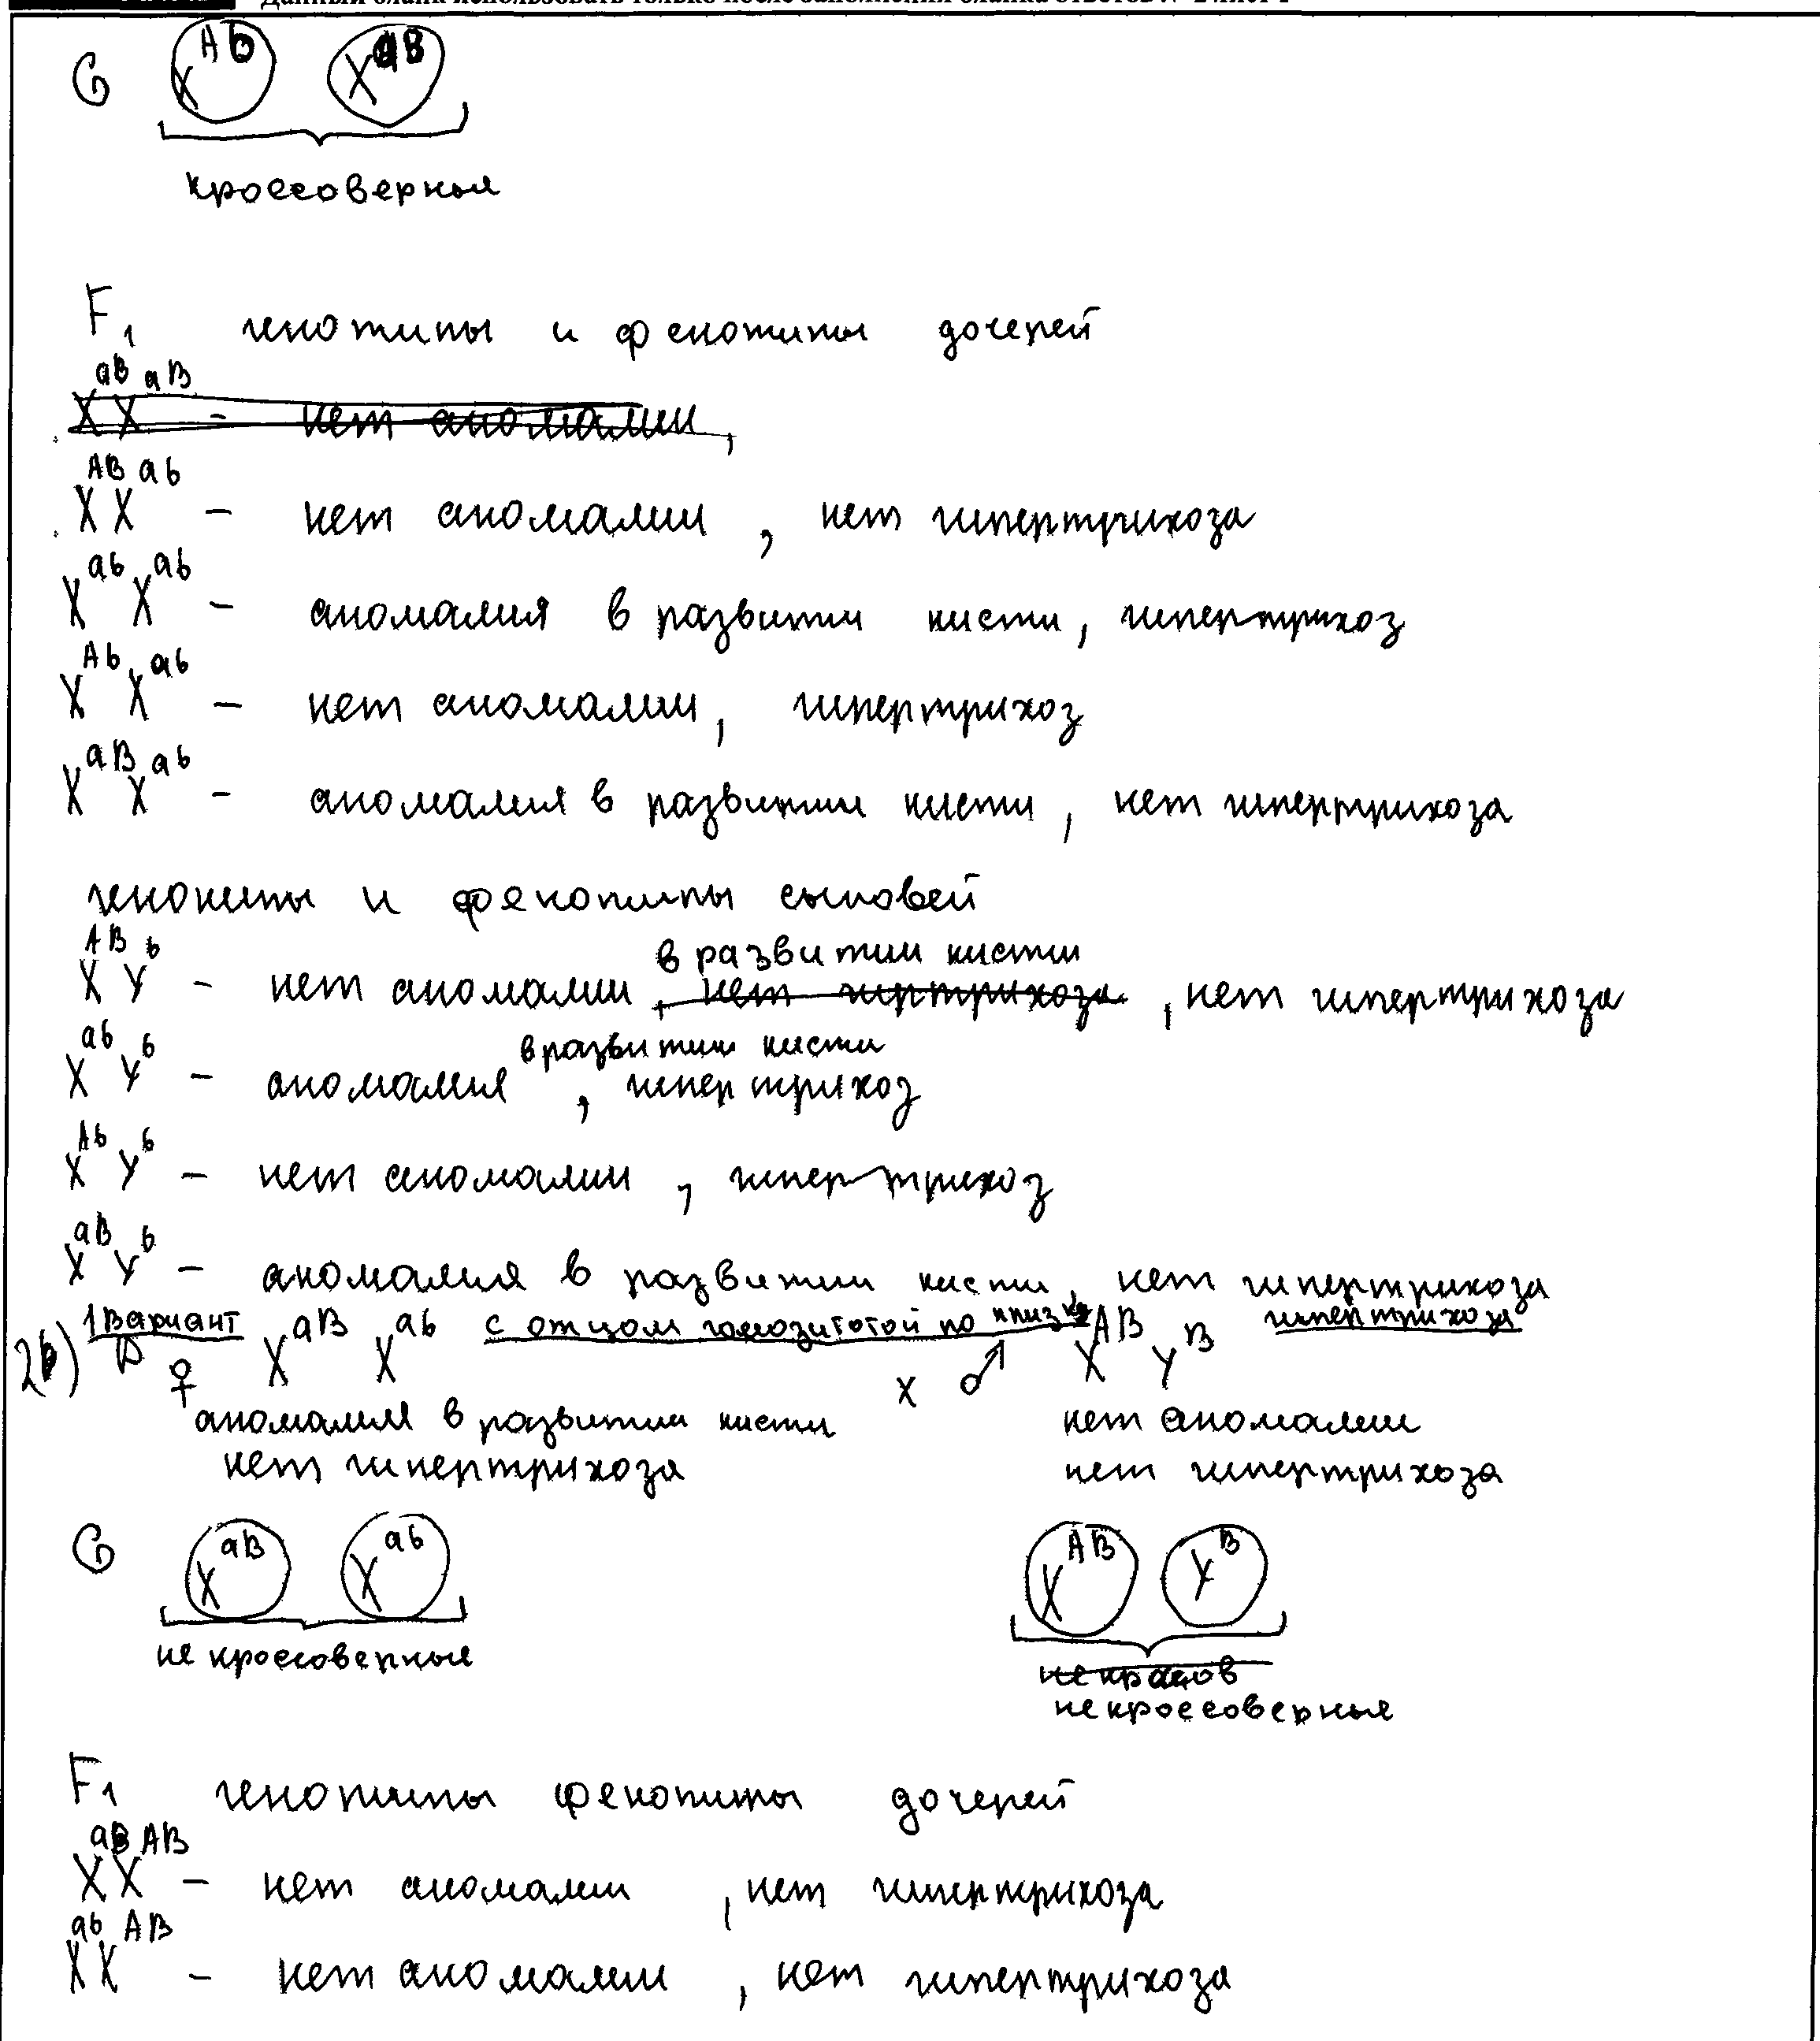 Данный бланк использовать только после заполнения бланка ответов № 2 лист 1
G X^Ab X^aB
кроссоверные
F1 генотипы и фенотипы дочерей
X^aB X^aB - нет аномалии,
X^AB X^ab - нет аномалии, нет гипертрихоза
X^ab X^ab - аномалия в развитии кисти, гипертрихоз
X^Ab X^ab - нет аномалии, гипертрихоз
X^aB X^ab - аномалия в развитии кисти, нет гипертрихоза
генотипы и фенотипы сыновей
X^AB Y^b - нет аномалии в развитии кисти, нет гиртрихоза, нет гипертрихоза
X^ab Y^b - аномалия в развитии кисти, гипертрихоз
X^Ab Y^b - нет аномалии, гипертрихоз
X^aB Y^b - аномалия в развитии кисти, нет гипертрихоза
1 вариант с отцом гомозиготой по гипертрихоза
2б) P ♀ X^aB X^ab x ♂ X^AB Y^B
аномалия в развитии кисти нет аномалии
нет гипертрихоза нет гипертрихоза
G X^aB X^ab X^AB Y^B
не кроссоверные
не кроссоверные
F1 генотипы фенотипы дочерей
X^aB X^AB - нет аномалии, нет гипертрихоза
X^ab X^AB - нет аномалии, нет гипертрихоза